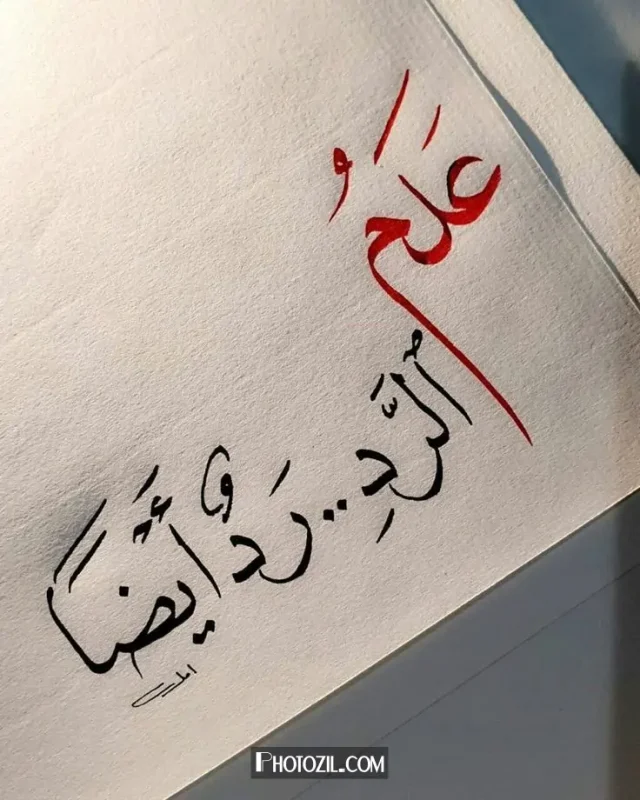 عَدَمُ
ٱلرَّدِ.. رَدٌ أَيْضًا
PHOTOZIL.COM